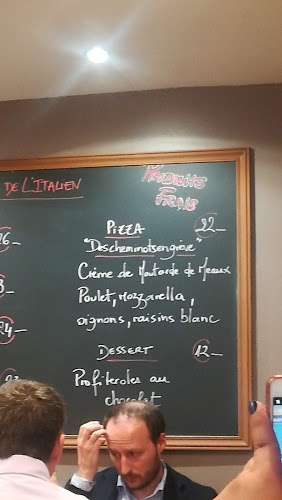 DE L'ITALIEN
PRODUITS
FRAIS
26-
PIZZA 22-
"Deschemmotsengrève"
Crème de Moutarde de Meaux
Poulet, mozzarella,
oignons, raisins blanc
24-
DESSERT 12-
Profiteroles au
chocolat